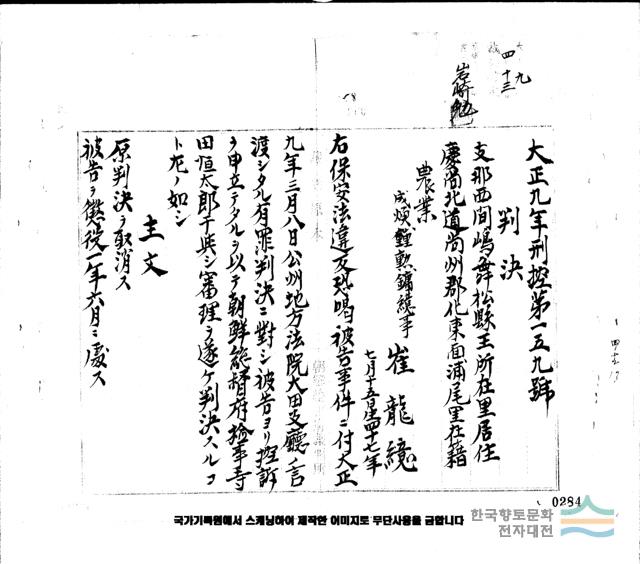 四 九
十三
大正九年刑控第一五九號
判決
支那西間嶋舞松縣王所在里居住
慶尚北道尚州郡化東面浦尾里在籍
農業
崔龍
七月十五日生四十七年
右保安法違反恐喝被告事件ニ付大正
九年三月八日公州地方法院大田支廳ノ言
渡シタル有罪判決ニ對シ被告ヨリ控訴
ヲ申立テタルヲ以テ朝鮮總督府檢事寺
田恒太郎干與シ審理ヲ遂ケ判決スルコ
ト左ノ如シ
主文
原判決ヲ取消ス
被告ヲ懲役一年六月ニ處ス
0284
국가기록원에서 스캐닝하여 제작한 이미지로 무단사용을 금합니다
한국향토문화
전자대전